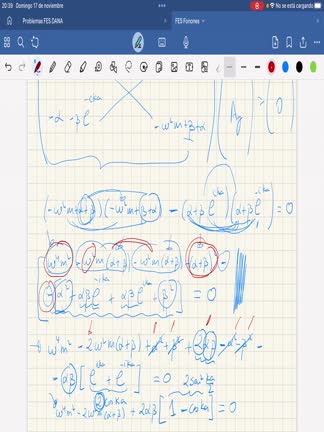 20:39 Domingo 17 de noviembre
No se está cargando
Problemas FES DANA
FES Fonones
-α -βe^{-ika}
-ω²m+β+α
A₂
= (0
(-ω²m+α+β)(-ω²m+β+α) - (α+βe^{ika})(α+βe^{-ika}) = 0
ω⁴m² - ω²m(α+β) - ω²m(α+β) + (α+β)² -
-[α² + αβe^{-ika} + αβe^{ika} + β²] = 0
→ ω⁴m² - 2ω²m(α+β) + α² + β² + 2αβ - α² - β² -
- αβ[e^{ika} + e^{-ika}] = 0
2cos ka
2sen² ka
ω⁴m² - 2ω²m(α+β) + 2αβ[1 - cos ka] = 0